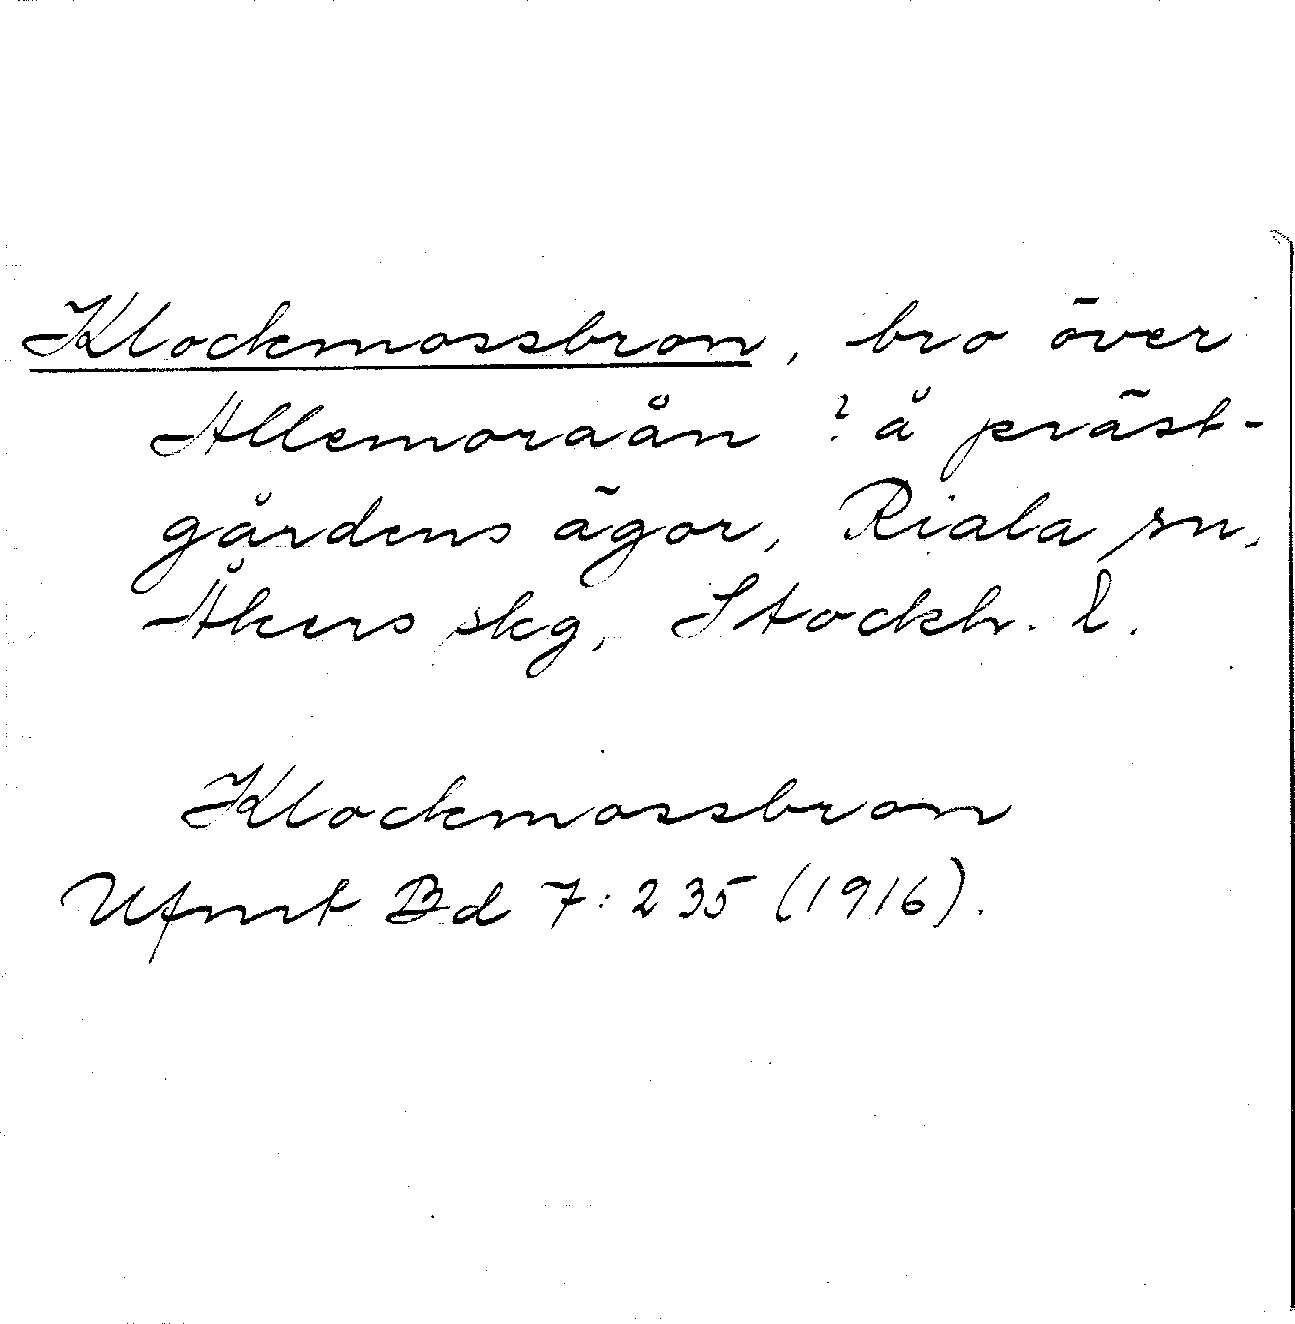 Klockmossbron, bro över
Allemoraån ? å präst-
gårdens ägor, Riala sn,
Åkers skg, Stockh. l.
Klockmossbron
Ufmt Bd 7:235 (1916).